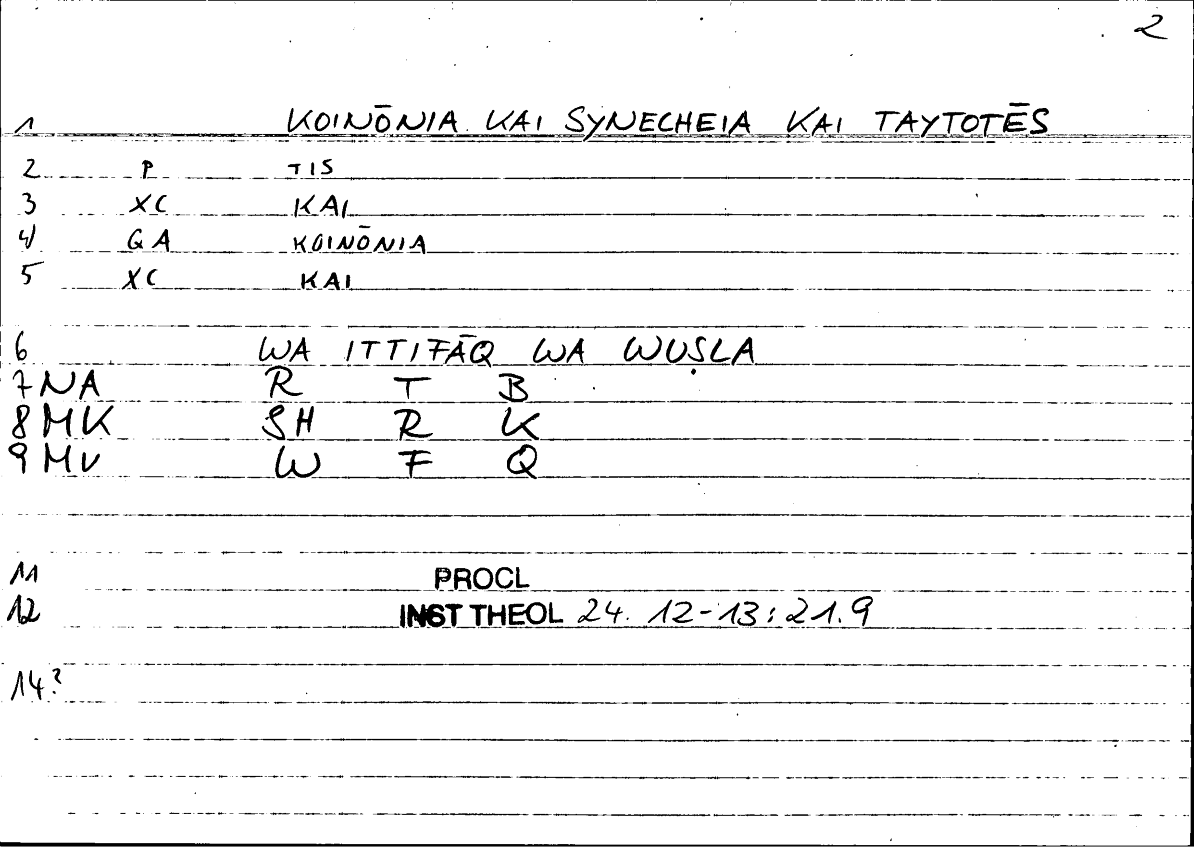 2
1 KOINŌNIA KAI SYNECHEIA KAI TAYTOTĒS
2 P TIS
3 XC KAI
4 GA KOINŌNIA
5 XC KAI
6 WA ITTIFĀQ WA WUṢLA
7 NA R T B
8 MK SH R K
9 MV W F Q
11 PROCL
12 INST THEOL 24. 12-13:21.9
14?